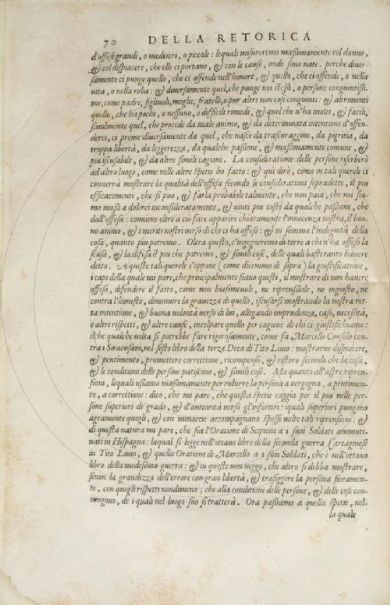 70 DELLA RETORICA
d'offese grandi, o mediocri, o piccole: lequali misureremo massimamente col danno,
& col dispiacere, che elle ci portano, & con le cause, onde sono nate. perche diver-
samente ci punge quello, che ci offende nell'honore, & quello, che ci offende, o nella
vita, o nella roba: & diversamente quel, che punge noi stessi, o persone congiuntissi-
me, come padre, figliuoli, moglie, fratello, o pur altri non così congiunti: & altrimenti
quello, che ha pochi, o nessuno, o difficili rimedi, & quel che n'ha molti, & facili,
similmente quel, che procede da male animo, & da determinata intentione d'offen-
derci, ci preme diversamente da quel, che nasce da trascuraggine, da pigritia, da
troppa libertà, da leggerezza, da qualche passione, & massimamente comune, &
poi iscusabile, & da altre simili cagioni. La consideratione delle persone riserberò
ad altro luogo, come nelle altre spetie ho fatto: & qui dirò, come in tali querele ci
converrà mostrare la qualità dell'offesa secondo le considerationi sopradette, il piu
efficacemente, che si può, & farla probabile talmente, che non paia, che noi sia-
mo mossi a dolerci inconsideratamente, & mossi piu tosto da qualche passione, che
dall'offesa: conviene oltre a ciò fare apparire chiaramente l'innocenza nostra, il buo-
no animo, & i meriti nostri verso di chi ci ha offeso: & in somma l'indegnità della
cosa, quanto piu potremo. Oltra questo, c'ingegneremo di torre a chi n'ha offeso la
scusa, & la difesa il piu che potremo, & simili cose, delle quali basti tanto havere
detto. Et a queste tali querele s'oppone (come dicemmo di sopra) la giustificatione,
i capi della quale mi pare, che principalmente siano questi, il mostrare di non havere
offeso, difendere il fatto, come non biasimevole, ne riprensibile, ne ingiusto, ne
contra l'honesto, diminuire la gravezza di quello, iscusarsi mostrando la nostra ret-
ta intentione, & buona volontà verso di lui, allegando imprudenza, caso, necessità,
o altri rispetti, & altre cause, incolpare quello per cagione di chi ci giustifichiamo:
il che qualche volta si potrebbe fare rigorosamente, come fa Marcello Consolo con-
tra i Siracusani, nel sesto libro della terza Deca di Tito Livio: mostrarne dispiacere,
& pentimento, promettere correttione, ricompensa, & ristoro secondo che la cosa,
& le conditioni delle persone patiscono, & simili cose. Ma quanto all'aspre ripren-
sioni, lequali usiamo massimamente per ridurre la persona a vergogna, a pentimen-
to, a correttione: dico, che mi pare, che questa spetie caggia per il piu nelle per-
sone superiori di grado, & d'autorità verso gl'inferiori: iquali superiori pungono
agramente quegli, & con minaccie accompagnano spesse volte tali riprensioni: &
di questa natura mi pare, che sia l'Oratione di Scipione a i suoi Soldati ammuti-
nati in Hispagna: laqual si legge nell'ottavo libro della seconda guerra Cartaginese
in Tito Livio, & quella Oratione di Marcello a i suoi Soldati, che è nell'ottavo
libro della medesima guerra: & in queste non veggo, che altro si debba mostrare,
senon la grandezza dell'errore con gran libertà, & trafiggere la persona fieramen-
te, con quegli rispetti nondimeno, che alla conditione delle persone, & delle cose con-
vengono, de i quali nel luogo suo si tratterà. Ora passiamo a quella spetie, nel-
la quale